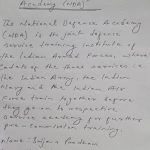 Academy (NDA)
The National Defence Academy
(NDA) is the joint defence
service training institute of
the Indian Armed Forces, where
cadets of the three services i.e.
the Indian Army, the Indian
Navy and the Indian Air
Force train together before
they go on to respective
service academy for further
pre-commission training.
Name: Sujata Pradhan